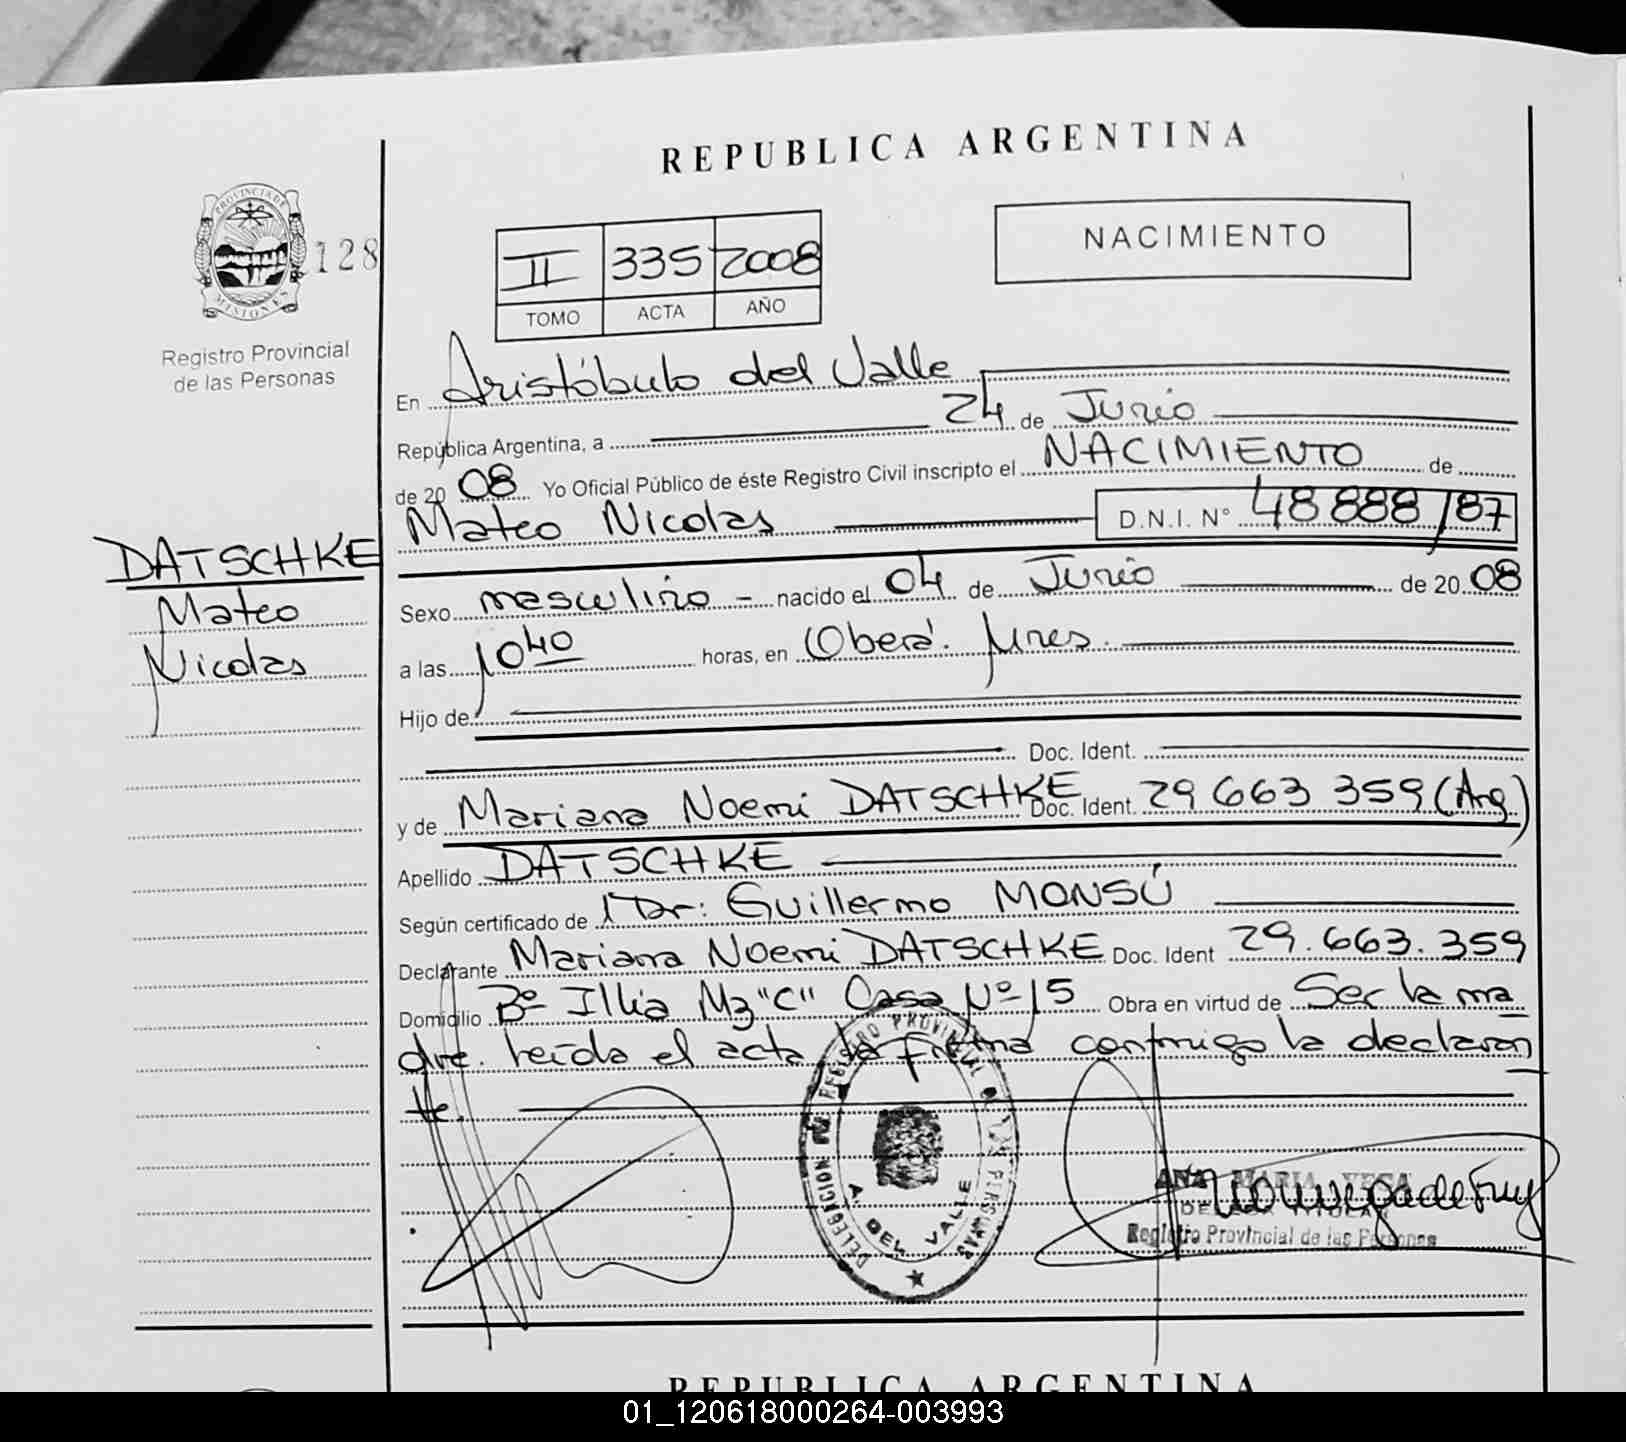 REPUBLICA ARGENTINA
PROVINCIA DE
MISIONES
128
Registro Provincial
de las Personas
II 335 2008
TOMO ACTA AÑO
NACIMIENTO
En Aristóbulo del Valle
República Argentina, a 24 de Junio
de 20 08 Yo Oficial Público de éste Registro Civil inscripto el NACIMIENTO de
Mateo Nicolas D.N.I. Nº 48 888 187
DATSCHKE
Mateo
Nicolas
Sexo masculino - nacido el 04 de Junio de 20 08
a las 10 40 horas, en Oberá. Mnes.
Hijo de
Doc. Ident.
y de Mariana Noemi DATSCHKE Doc. Ident. 29 663 359 (Arg.)
Apellido DATSCHKE
Según certificado de Dr: Guillermo MONSÚ
Declarante Mariana Noemi DATSCHKE Doc. Ident 29.663.359
Domicilio Bº Illia Mz "C" Casa Nº 15 Obra en virtud de Ser la ma
dre. Leída el acta la firma conmigo la declaran
te.
DELEGACION REGISTRO PROVINCIAL DE LAS PERSONAS
A. DEL VALLE
ANA MARIA VEGA
DELEGADA TITULAR
Registro Provincial de las Personas
REPUBLICA ARGENTINA
01_120618000264-003993